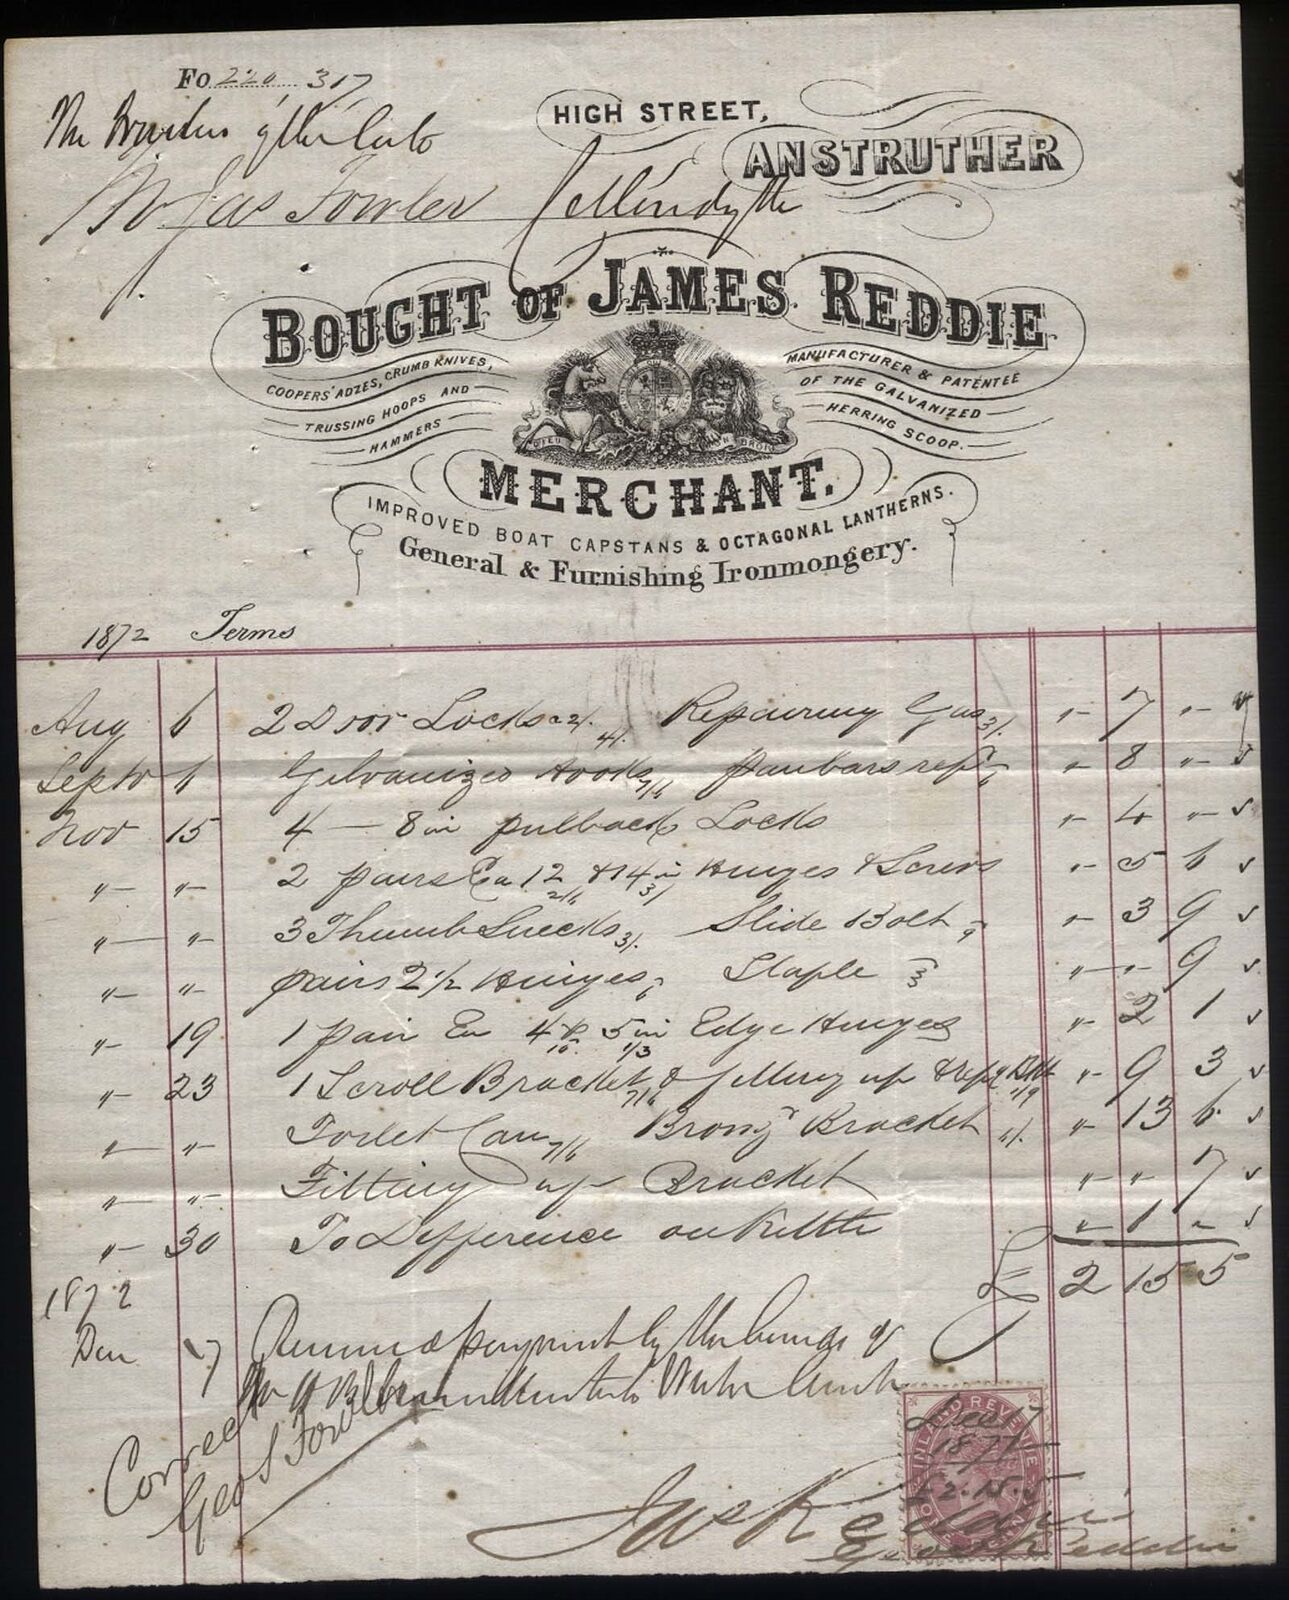 Fo 220. 317
HIGH STREET,
ANSTRUTHER
Jas Fowler
BOUGHT OF JAMES REDDIE
COOPERS' ADZES, CRUMB KNIVES,
TRUSSING HOOPS AND
HAMMERS
MANUFACTURER & PATENTEE
OF THE GALVANIZED
HERRING SCOOP.
MERCHANT.
IMPROVED BOAT CAPSTANS & OCTAGONAL LANTHERNS.
General & Furnishing Ironmongery.
1872 Terms
Aug 6 2 Door Locks a 2/. 4/. Repairing Gas 3/. " 7 "
Septr 6 Gilvanized Hooks 7/6 6 " 8 "
Nov 15 4 — 8 in pullback Locks " 4 "
" " 2 pairs Ea 12 2/6 & 14 in 3/ Hinges & Screws " 5 6
" " 3 Thumb Snecks 3/. Slide Bolt 9 " 3 9
" " pairs 2 1/2 Hinges 6 Staple 3 " " 9
" 19 1 pair Ea 4 10 & 5 in 1/3 Edge Hinges " 2 1
" 23 1 Scroll Bracket 7/6 & fitting up & 1/9 " 9 3
" " Toilet Can 7/6 Bronzd Bracket 6/. " 13 6
" " Fitting up Bracket " " 7
" 30 To Difference on Kettle " 1 "
£ 2 15 5
1872
17 payment by the hands of
Correct
Geo S Fowler
INLAND REVENUE
ONE PENNY
Dec 17
187
£2.15.5
Jas Reddie
Reddie